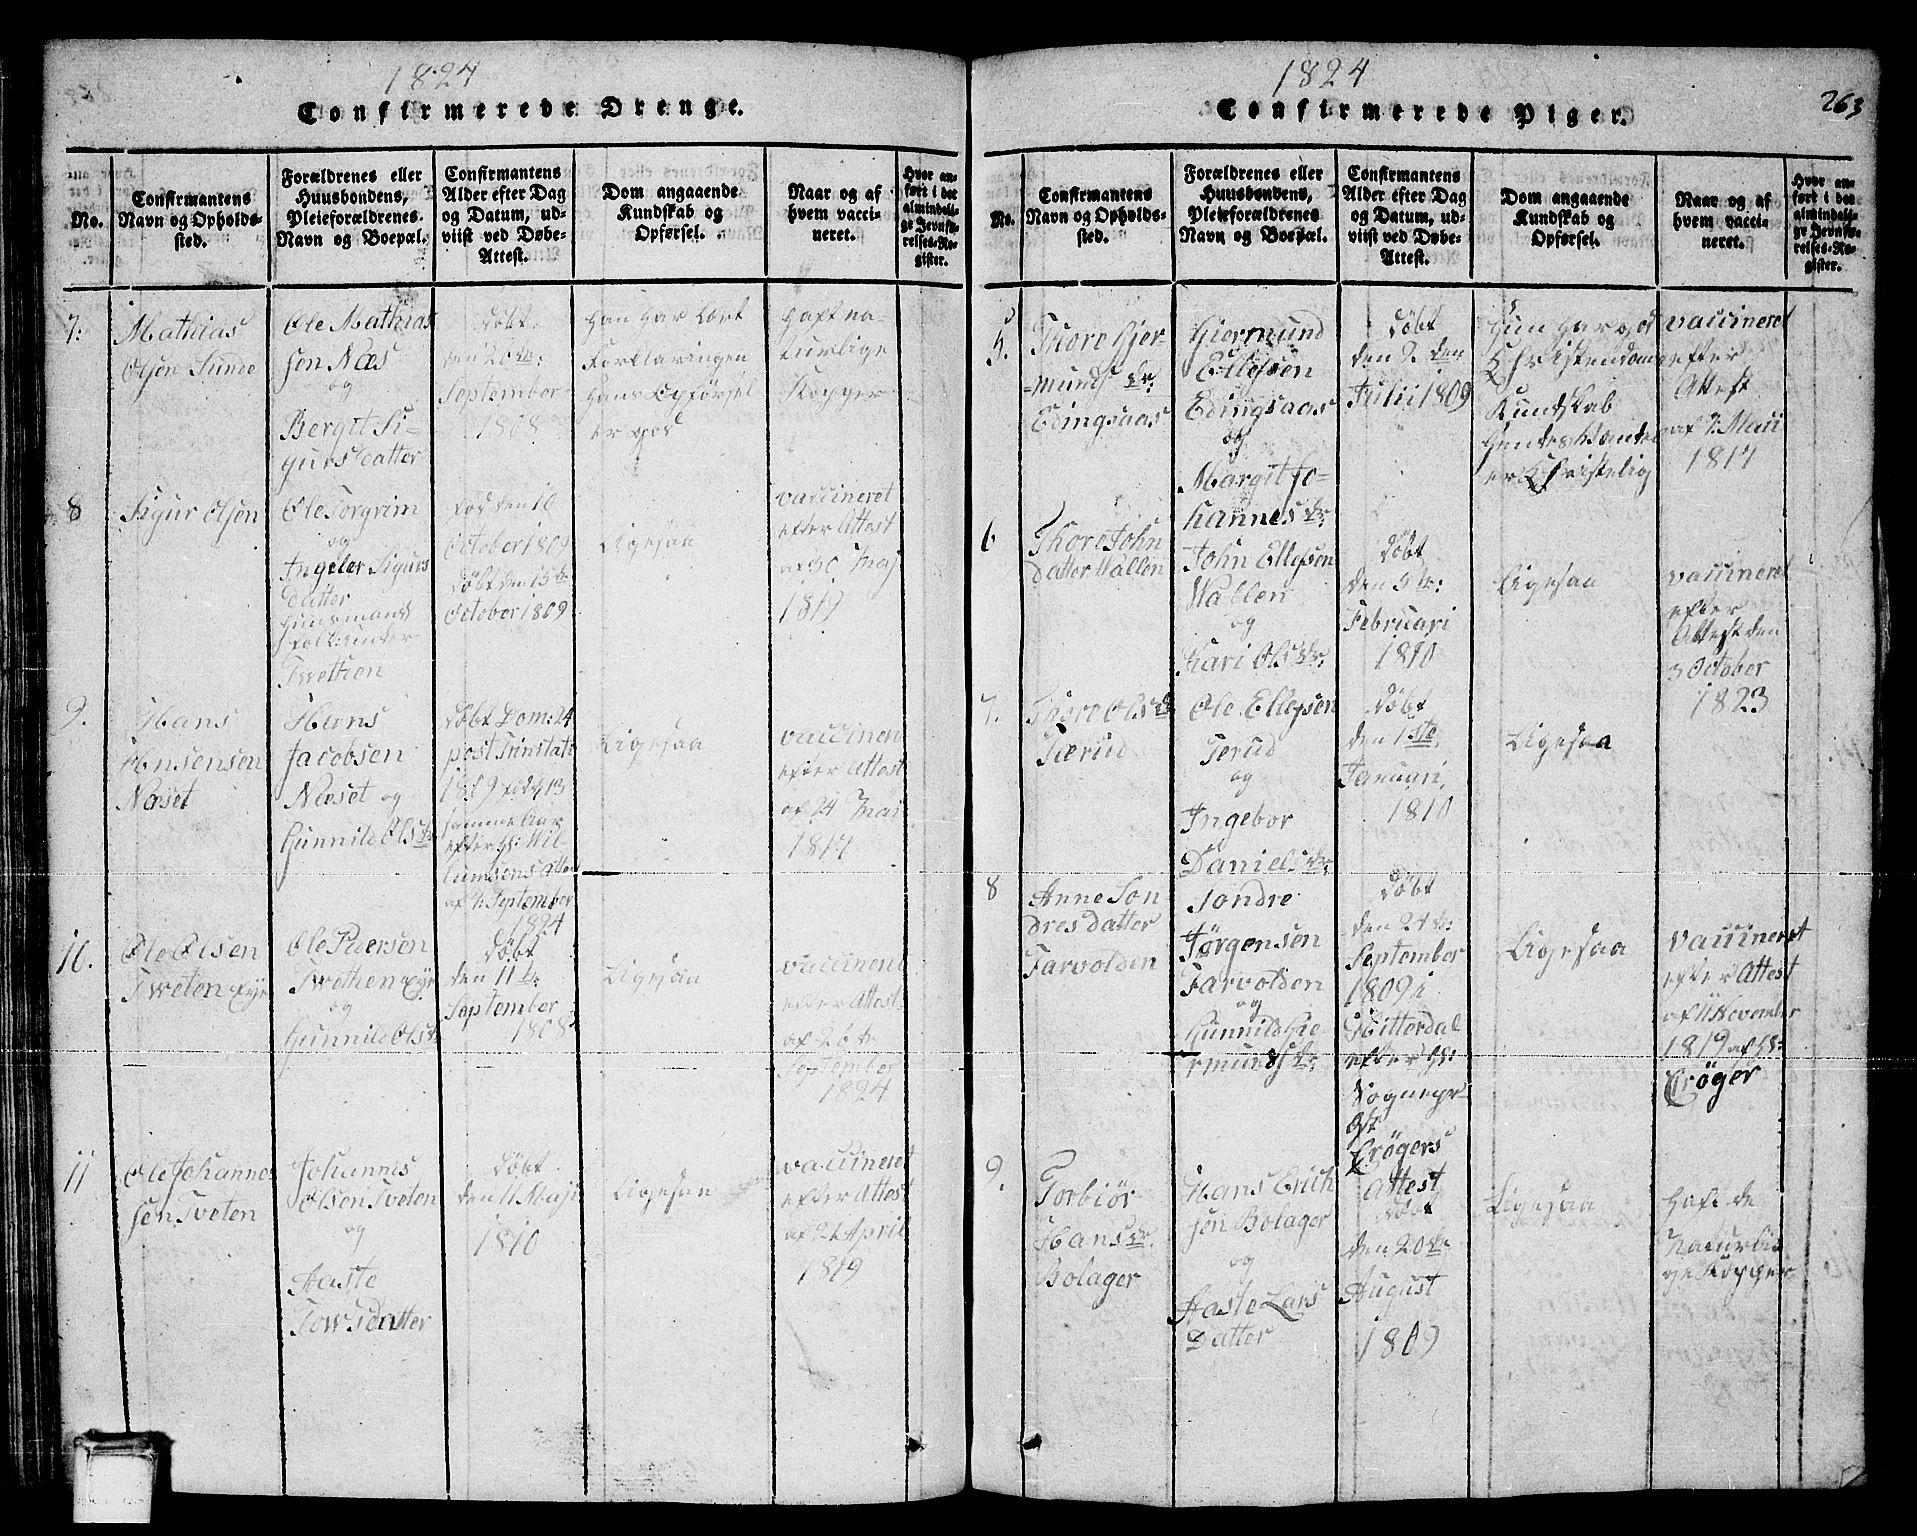 1824
Confirmerede Drenge.
No.
Confirmantens
Navn og Opholds-
sted.
Forældrenes eller
Huusbondens,
Pleieforældrenes
Navn og Boepæl.
Confirmantens
Alder efter Dag
og Datum, ud-
viist ved Døbe-
Attest.
Dom angaaende
Kundskab og
Opførsel.
Naar og af
hvem vacci-
neret.
Hvor an-
ført i det
almindeli-
ge Jevnfø-
relses-Re-
gister.
7.
Mathias
Olsen Sunde
Ole Mathias
sen Næs
og
Bergit Si-
gursdatter
døbt
den 26de
September
1808
Han har lært
Forklaringen
Hans Opførsel
er god
Haft na-
turlige
Kopper
8
Sigur Olsen
Ole Torgrim
og
Ingeler Sigurs
datter
Huusmands
folk under
Twethen
fød den 10
October 1809
døbt den 15de
October 1809
Ligesaa
vaccineret
efter Attest
af 30 Maj
1819
9.
Hans
Hansensen
Næset
Hans
Jacobsen
Næset og
Gunnild Olsdr
døbt Dom: 24
post Trinitati
1809 fød 13
samme Aar
efter Hr: Wil-
lumsens Attest
af 4 September
1824
Ligesaa
vaccineret
efter Attest
af 24 Mai
1817
10.
Ole Olsen
Tweten Eye
Ole Pedersen
Twethen Eye
og
Gunnild Olsdr
døbt
den 11de
September
1808
Ligesaa
vaccineret
efter Attest
af 26de
September
1824
11
Ole Johannes
sen Tveten
Johannes
Olsen Tveten
og
Aaste
Towsdatter
døbt
den 11 Maji
1810
Ligesaa
vaccineret
efter Attest
af 21 April
1819
1824
263
Confirmerede Piger.
No.
Confirmantens
Navn og Opholds-
sted.
Forældrenes eller
Huusbondens,
Pleieforældrenes
Navn og Boepæl.
Confirmantens
Alder efter Dag
og Datum, ud-
viist ved Døbe-
Attest.
Dom angaaende
Kundskab og
Opførsel.
Naar og af
hvem vacci-
neret.
Hvor an-
ført i det
almindeli-
ge Jevnfø-
relses-Re-
gister.
5.
Thore Gjer-
munds dr:
Edingsaas
Giermund
Ellefsen
Edingsaas
og
Margit Jo-
hannesdr:
døbt
den 2den
Julii 1809
Hun har god
Christendoms
Kundskab
Hendes Vandel
er Christelig
vaccineret
efter
Attest
af 7. Maii
1817
6
Thore John
datter Vallen
John Ellefsen
Wallen
og
Kari Olsdr:
døbt
den 5te:
Februari
1810
Ligesaa
vaccineret
efter
Attest den
3 October
1823
7.
Thore Olsdr
Terud
Ole Ellefsen
Terud
og
Ingebor
Danielsdr:
døbt
den 1ste
Januari,
1810
Ligesaa
8
Anne Son
dresdatter
Farvolden
Sondre
Jørgensen
Farvolden
og
Gunnild Gie
rmundsdr:
døbt
den 24de:
September
1809 i
Hitterdal
efter Hr:
Sognepr-
æst
Crøgers
Attest
Ligesaa
vaccineret
efter Attest
af 11 November
1819 af Hr:
Crøger
9.
Torbiør
Hansdr.
Bolager
Hans Erich
sen Bolager
og
Aaste Lars
Datter
døbt
den 20de
August
1809
Ligesaa
Haft de
Naturli-
ge Kopper